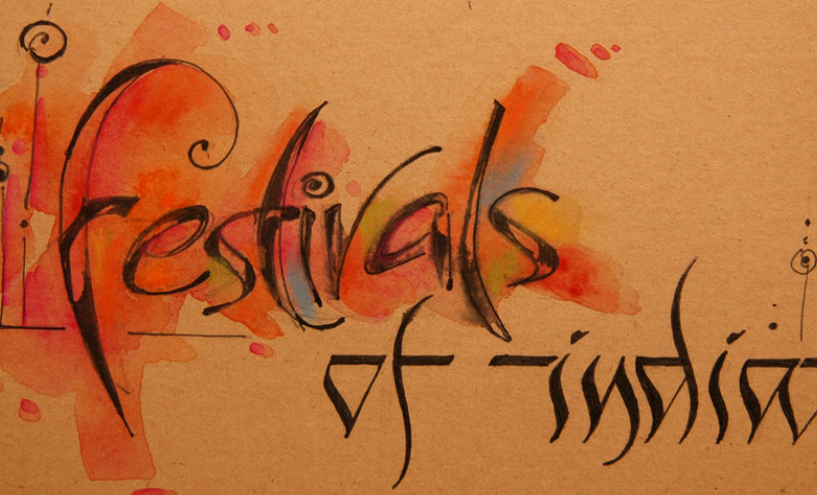 festivals
of india